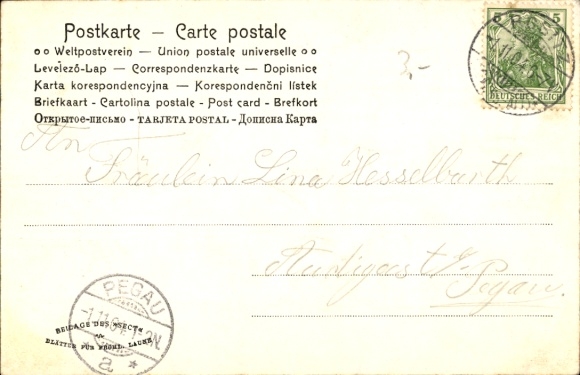 Postkarte – Carte postale
Weltpostverein – Union postale universelle
Levelező-Lap – Correspondenzkarte – Dopisnice
Karta korespondencyjna – Korespondenční lístek
Briefkaart - Cartolina postale - Post card - Brefkort
Открытое-письмо - TARJETA POSTAL - Дописна Карта
3,-
5 5
DEUTSCHES REICH
An
Fräulein Lina Hesselbarth
Audigast b/
Pegau.
PEGAU
BEIGABE DES „SECT“
BLÄTTER FÜR FRÖHL. LAUNE
a